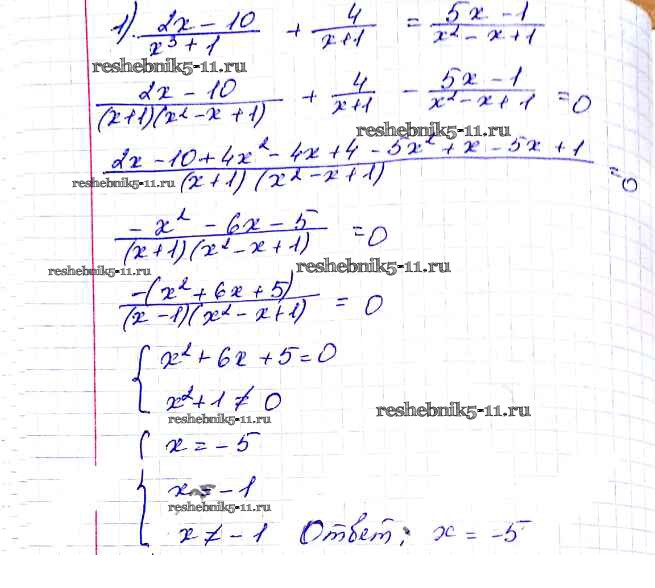 1) (2x - 10)/(x³ + 1) + 4/(x+1) = (5x - 1)/(x² - x + 1)
reshebnik5-11.ru
(2x - 10)/((x+1)(x² - x + 1)) + 4/(x+1) - (5x - 1)/(x² - x + 1) = 0
reshebnik5-11.ru
(2x - 10 + 4x² - 4x + 4 - 5x² + x - 5x + 1)/((x+1)(x² - x + 1)) = 0
reshebnik5-11.ru
(-x² - 6x - 5)/((x+1)(x² - x + 1)) = 0
reshebnik5-11.ru reshebnik5-11.ru
(-(x² + 6x + 5))/((x - 1)(x² - x + 1)) = 0
{ x² + 6x + 5 = 0
x² + 1 ≠ 0
reshebnik5-11.ru reshebnik5-11.ru
{ x = -5
{ x = -1
reshebnik5-11.ru
x ≠ -1 Ответ: x = -5